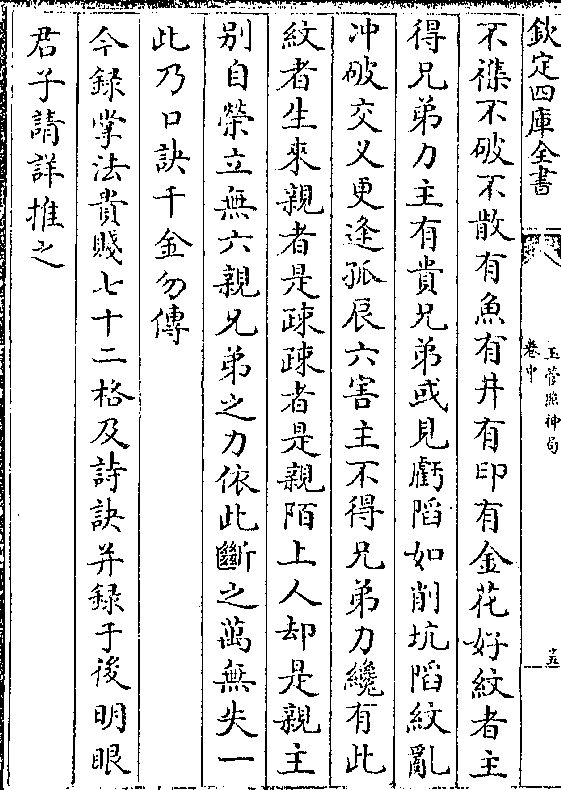 欽定四庫全書
玉管照神局
卷中
十五
不襍不破不散有魚有井有印有金花好紋者主
得兄弟力主有貴兄弟或見虧䧟如削坑䧟紋亂
冲破交义更逢孤辰六害主不得兄弟力纔有此
紋者生來親者是踈踈者是親陌上人却是親主
别自榮立無六親兄弟之力依此斷之萬無失一
此乃口訣千金勿傳
今録掌法貴賤七十二格及詩訣并録于後明眼
君子請詳推之